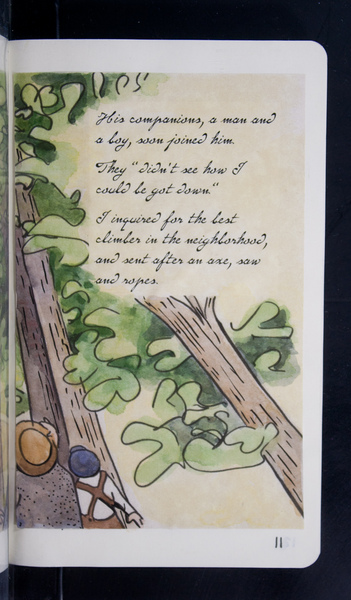 His companions, a man and
a boy, soon joined him.
They "didn't see how I
could be got down."
I inquired for the best
climber in the neighborhood,
and sent after an axe, saw
and ropes.